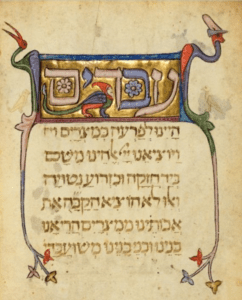 עבדים
היינו לפרעה במצרים ויו
ויוציאנו יי אלהינו משם
ביד חזקה ובזרוע נטויה
ואלו לא הוציא הקבה את
אבותינו ממצרים הרי אנו
בנינו ובני בנינו משועבדי